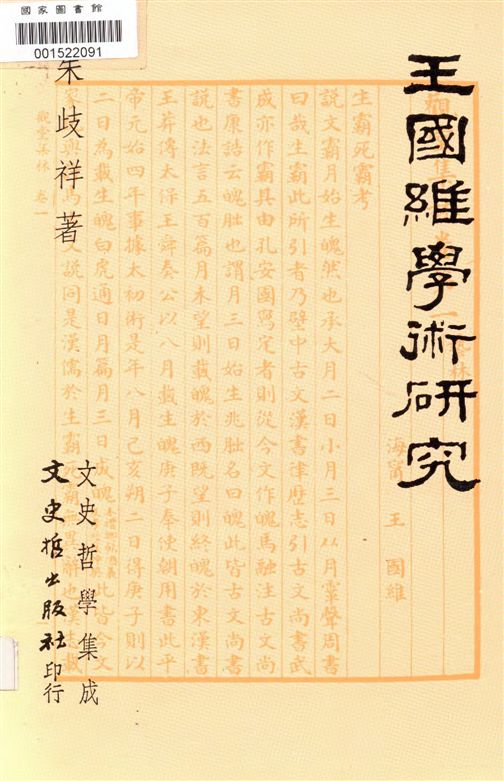 國家圖書館
001522091
王國維學術研究
朱歧祥著
文史哲學集成
文史哲出版社印行
海甯 王國維
生霸死霸考
說文霸月始生魄然也承大月二日小月三日从月䨣聲周書
曰哉生霸此所引者乃壁中古文漢書律歷志引古文尚書武
成亦作霸其由孔安國寫定者則從今文作魄馬融注古文尚
書康誥云魄朏也謂月三日始生兆朏名曰魄此皆古文尚書
說也法言五百篇月未望則載魄於西既望則終魄於東漢書
王莽傳太保王舜奏公以八月載生魄庚子奉使朝用書此平
帝元始四年事據太初術是年八月己亥朔二日得庚子則以
二日為載生魄白虎通日月篇月三日成魄此皆今文
說同是漢儒於生霸
觀堂集林 卷一